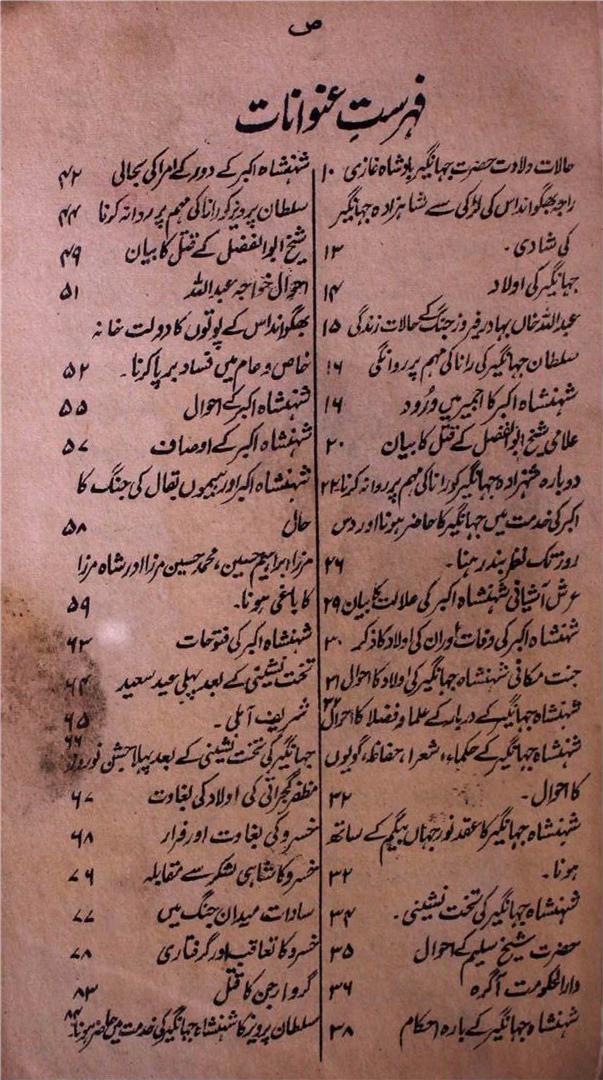 ص
فہرستِ عنوانات
حالات ولادت حضرت جہانگیر بادشاہ غازی ۱۰
راجہ بھگوانداس کی لڑکی سے شاہزادہ جہانگیر
کی شادی۔ ۱۳
جہانگیر کی اولاد ۱۴
عبداللہ خاں بہادر فیروز جنگ کے حالات زندگی ۱۵
سلطان جہانگیر کی رانا کی مہم پر روانگی ۱۶
شہنشاہ اکبر کا اجمیر میں ورُود ۱۶
علامی شیخ ابوالفضل کے قتل کا بیان ۲۰
دوبارہ شہزادہ جہانگیر کو رانا کی مہم پر روانہ کرنا ۲۲
اکبر کی خدمت میں جہانگیر کا حاضر ہونا اور دس
روز تک نظر بند رہنا۔ ۲۶
عرش آشیانی شہنشاہ اکبر کی علالت کا بیان ۲۹
شہنشاہ اکبر کی وفات اور ان کی اولاد کا ذکر ۳۰
جنت مکانی شہنشاہ جہانگیر کی اولاد کا احوال ۳۱
شہنشاہ جہانگیر کے دربار کے علما و فضلا کا احوال ۳۲
شہنشاہ جہانگیر کے حکماء، شعرا، حفاظ، گویوں
کا احوال۔ ۳۲
شہنشاہ جہانگیر کا عقد نور جہاں بیگم کے ساتھ
ہونا۔ ۳۲
شہنشاہ جہانگیر کی تخت نشینی۔ ۳۴
حضرت شیخ سلیم کے احوال ۳۵
دارالحکومت آگرہ ۳۶
شہنشاہ جہانگیر کے بارہ احکام ۳۸
شہنشاہ اکبر کے دور کے امرا کی بحالی ۴۲
سلطان پرویز کو رانا کی مہم پر روانہ کرنا ۴۴
شیخ ابوالفضل کے قتل کا بیان ۴۹
احوال خواجہ عبداللہ ۵۱
بھگوانداس کے پوتوں کا دولت خانہ
خاص و عام میں فساد برپا کرنا۔ ۵۲
شہنشاہ اکبر کے احوال ۵۵
شہنشاہ اکبر کے اوصاف ۵۷
شہنشاہ اکبر اور ہیموں بقال کی جنگ کا
حال ۵۸
مرزا ابراہیم حسین، محمد حسین مرزا اور شاہ مرزا
کا باغی ہونا۔ ۵۹
شہنشاہ اکبر کی فتوحات ۶۳
تخت نشینی کے بعد پہلی عید سعید ۶۴
شریف آملی۔ ۶۵
جہانگیر کی تخت نشینی کے بعد پہلا جشن نوروز ۶۶
مظفر گجراتی کی اولاد کی بغاوت ۶۷
خسرو کی بغاوت اور فرار ۶۸
خسرو کا شاہی لشکر سے مقابلہ ۷۶
سادات میدان جنگ میں ۷۷
خسرو کا تعاقب اور گرفتاری ۷۸
گرو ارجن کا قتل ۸۳
سلطان پرویز کا شہنشاہ جہانگیر کی خدمت میں حاضر ہونا۔ ۸۴